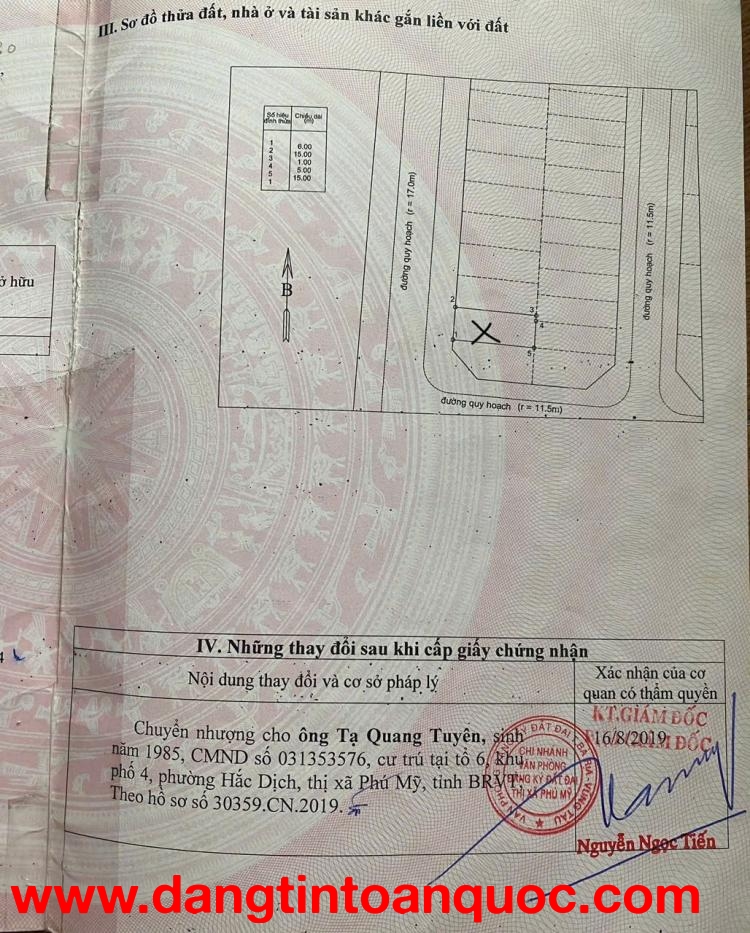 III. Sơ đồ thửa đất, nhà ở và tài sản khác gắn liền với đất
ở hữu
Số hiệu đỉnh thửa
Chiều dài (m)
1
6.00
2
15.00
3
1.00
4
5.00
5
15.00
1
B
đường quy hoạch (r = 17.0m)
đường quy hoạch (r = 11.5m)
2
3
4
1
5
đường quy hoạch (r = 11.5m)
IV. Những thay đổi sau khi cấp giấy chứng nhận
Nội dung thay đổi và cơ sở pháp lý
Xác nhận của cơ quan có thẩm quyền
Chuyển nhượng cho ông Tạ Quang Tuyên, sinh
năm 1985, CMND số 031353576, cư trú tại tổ 6, khu
phố 4, phường Hắc Dịch, thị xã Phú Mỹ, tỉnh BRVT.
Theo hồ sơ số 30359.CN.2019.
KT.GIÁM ĐỐC
16/8/2019
GIÁM ĐỐC
CHI NHÁNH
VĂN PHÒNG
ĐĂNG KÝ ĐẤT ĐAI
THỊ XÃ PHÚ MỸ
Nguyễn Ngọc Tiến
www.dangtintoanquoc.com